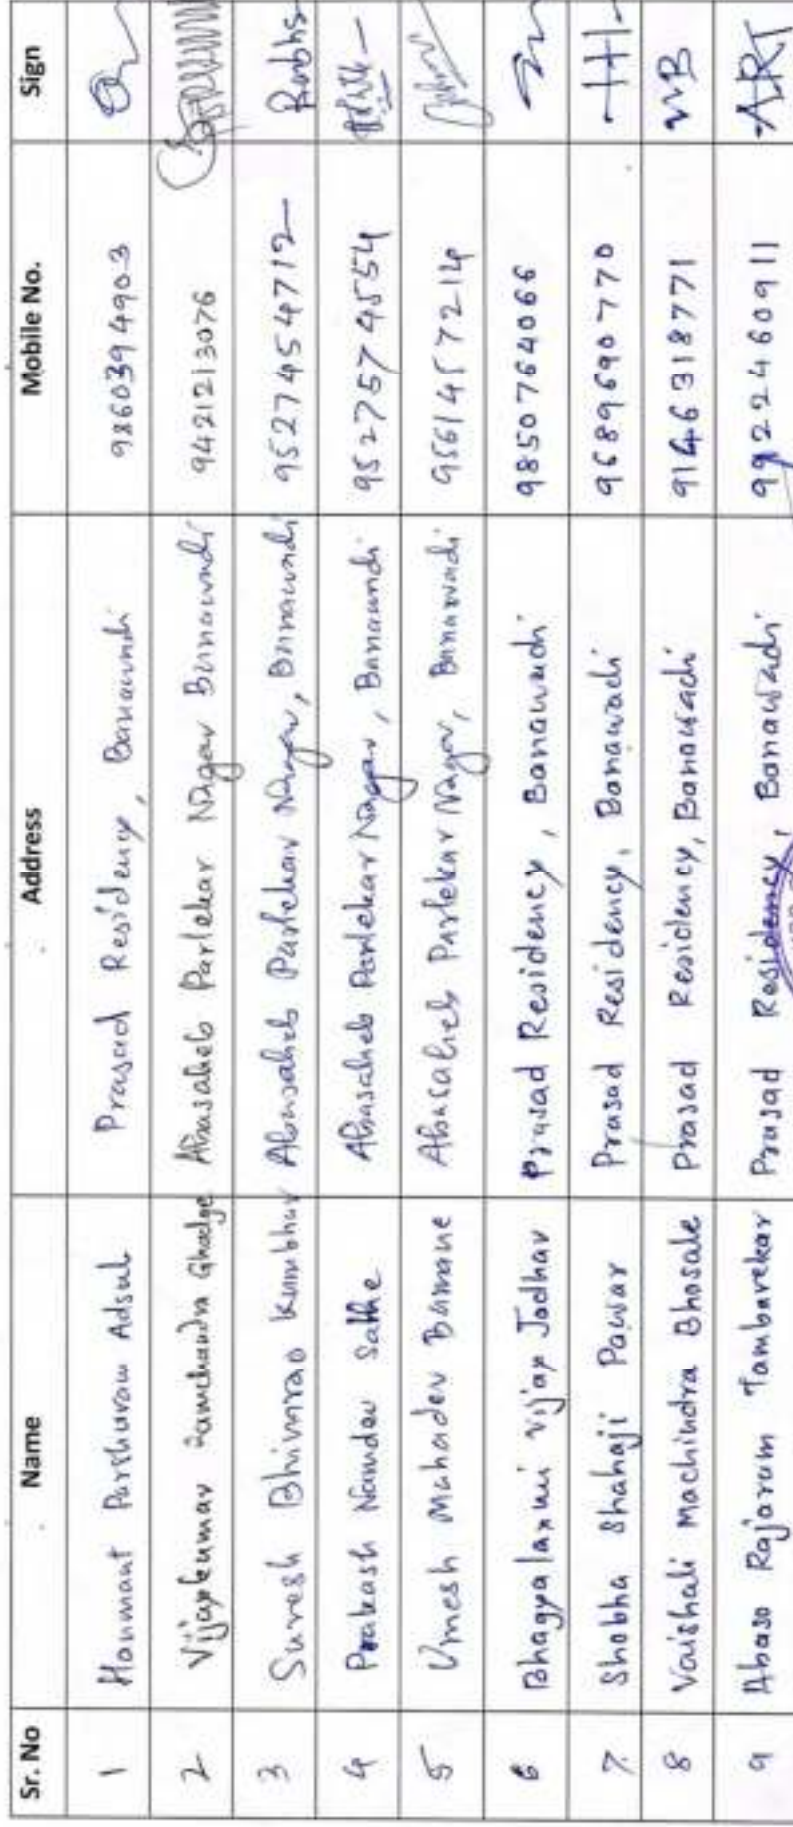 Sr. No Name Address Mobile No. Sign
1 Hanmant Parshuram Adsul Prasad Residency, Banawadi 9860394903
2 Vijaykumar Ramchandra Ghadge Abasaheb Parlekar Nagar Banawadi 9421213076
3 Suresh Bhimrao Kumbhar Abasaheb Parlekar Nagar, Banawadi 9527454712
4 Prakash Namdev Sathe Abasaheb Parlekar Nagar, Banawadi 9527574554
5 Umesh Mahadev Bamane Abasaheb Parlekar Nagar, Banawadi 9561457214
6 Bhagyalaxmi Vijay Jadhav Prasad Residency, Banawadi 9850764066
7 Shobha Shahaji Pawar Prasad Residency, Banawadi 9689690770
8 Vaishali Machindra Bhosale Prasad Residency, Banawadi 9146318771
9 Abaso Rajaram Tambavekar Prasad Residency, Banawadi 9922460911 ART